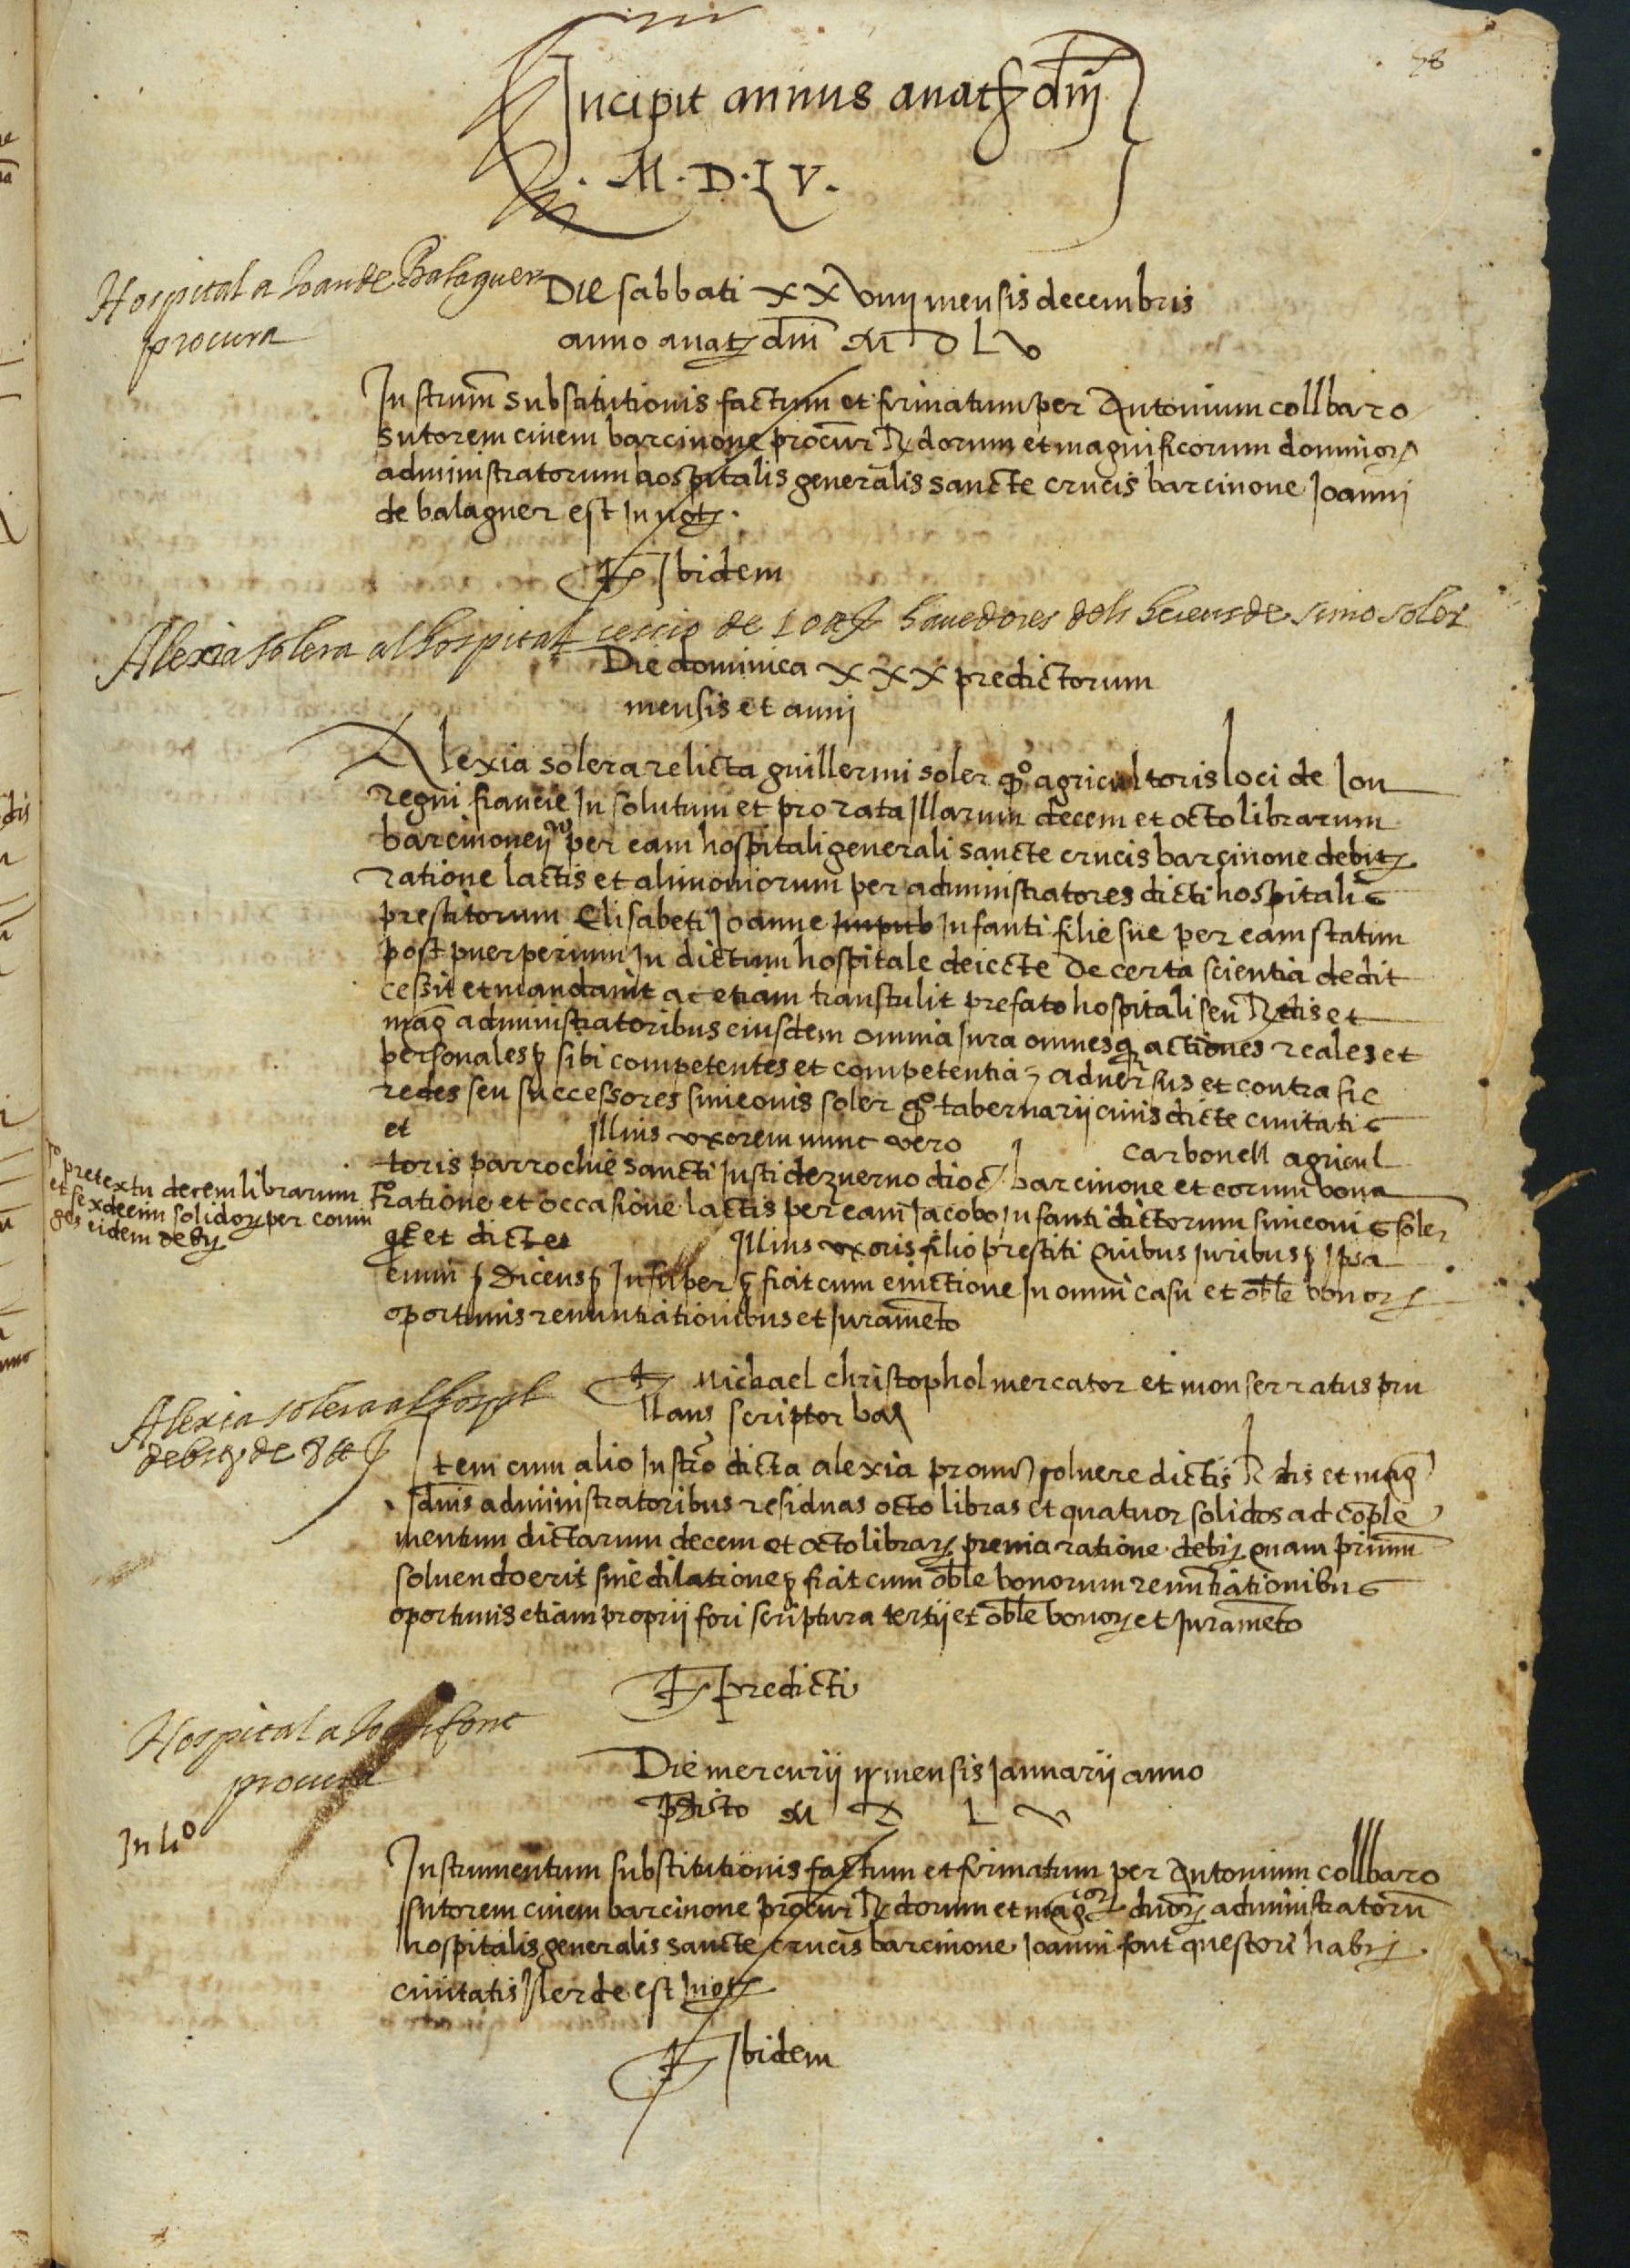 78
Incipit annus a nat dni
. M . D . L V .
Hospital a Joan de Balaguer
procura
Die sabbati xxviiij mensis decembris
anno a nat dni M D L V
Instrum substitutionis factum et firmatum per Antonium collbaro
sutorem civem barcinone procur R dorum et magnificorum dominor
administratorum hospitalis generalis sancte crucis barcinone Joanni
de balaguer est In not.
Ts Ibidem
Alexia solera al hospital cessio de 10 havedores dels bens de simo soler
Die dominica xxx predictorum
mensis et anni
Alexia solera relicta guillermi soler qo agricultoris loci de Jou
regni francie In solutum et pro rata Illarum decem et octo librarum
barcinonen per eam hospitali generali sancte crucis barcinone debit
ratione lactis et alimoniorum per administratores dicti hospitalis
prestitorum Elisabeti Joanne Infanti filie sue per eam statim
post puerperium In dictum hospitale deiecte De certa scientia dedit
cessit et mandavit ac etiam transtulit prefato hospitali seu R dis et
mag administratoribus eiusdem omnia Jura omnesq actiones reales et
personales sibi competentes et competentia adversus et contra he
redes seu successores simeonis soler qo tabernarii civis dicte civitatis
et Illius uxorem nunc vero carbonell agricul
toris parrochie sancti Justi dezvern dioc barcinone et eorum bona
pretextu decem librarum
et sexdecim solidor per coniu
ges eidem deb
ratione et occasione lactis per eam Jacobo Infanti dictorum simeonis soler
qo et dicte Illius uxoris filio prestiti Quibus Juribus Ipsa
enim Dicens Insuper fiat cum evictione In omni casu et oble bonor
oportunis renuntiationibus et Jurameto
Ts Michael christophol mercator et monserratus pru
llans scriptor bar
Alexia solera al hospl
debit de 8
Item cum alio Instro dicta alexia promis solvere dictis R dis et mag
dnis administratoribus residuas octo libras et quatuor solidos ad comple
mentum dictarum decem et octo librar premia ratione debit quam primum
solvendo erit sine dilatione fiat cum oble bonorum renuntiationibus
oportunis etiam proprii fori scriptura tertii et oble bonor et Jurameto
Ts predicti
Hospital a Joan font
procura
Die mercurii ij mensis Januarii anno
pdicto M D L V
In lio
Instrumentum substitutionis factum et firmatum per Antonium collbaro
sutorem civem barcinone procur R dorum et magcor dnor administratorum
hospitalis generalis sancte crucis barcinone Joanni font questori habit
civitatis Ilerde est In not
Ts Ibidem